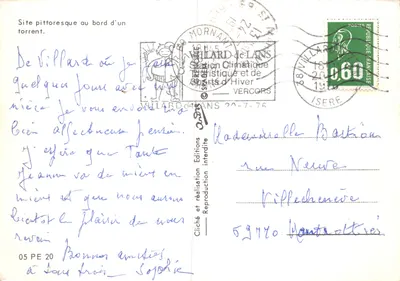 Site pittoresque au bord d'un
torrent.
De Villard où je passe
quelques jours avec ma
nièce je vous envoie ma
bien affectueuse pensée.
J'espère que Tante
Jeanne va de mieux en
mieux et que nous aurons
bientôt le plaisir de nous
revoir. Bonnes amitiés
à tous trois
05 PE 20
Cliché et réalisation Editions
Reproduction interdite
MORNANT
VILLARD de LANS
Station Climatique
Touristique et de
Sports d'Hiver
VERCORS
38 VILLARD
ISERE
0,60
Mademoiselle
rue Neuve
Villechenève
59770